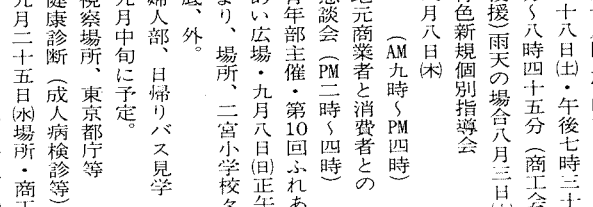 十八日㈯・午後七時三十
〜八時四十五分（商工会
援）雨天の場合八月三日
青色新規個別指導会
月八日㈭
（AM九時〜PM四時）
地元商業者と消費者との
懇談会（PM二時〜四時）
青年部主催・第10回ふれあ
あい広場・九月八日㈰正午
より、場所、二宮小学校
、外。
婦人部、日帰りバス見学
九月中旬に予定。
視察場所、東京都庁等
健康診断（成人病検診等）
九月二十五日㈬場所・商工